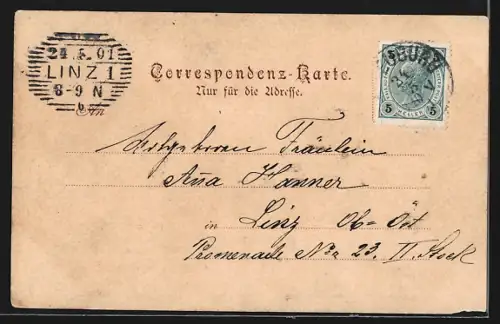 24.5.01
LINZ 1
8-9 N
Correspondenz-Karte.
Nur für die Adresse.
5 HELLER 5
An
Fräulein
Hanner
in Linz Ob-Öst
Promenade No 23. II. Stock